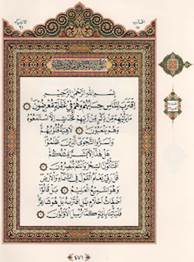 بِسْمِ اللَّهِ الرَّحْمَٰنِ الرَّحِيمِ
اقْتَرَبَ لِلنَّاسِ حِسَابُهُمْ وَهُمْ فِي غَفْلَةٍ مُعْرِضُونَ
مَا يَأْتِيهِمْ مِنْ ذِكْرٍ مِنْ رَبِّهِمْ مُحْدَثٍ إِلَّا اسْتَمَعُوهُ
وَهُمْ يَلْعَبُونَ لَاهِيَةً قُلُوبُهُمْ
وَأَسَرُّوا النَّجْوَى الَّذِينَ ظَلَمُوا
هَلْ هَٰذَا إِلَّا بَشَرٌ مِثْلُكُمْ
أَفَتَأْتُونَ السِّحْرَ وَأَنْتُمْ تُبْصِرُونَ
قَالَ رَبِّي يَعْلَمُ الْقَوْلَ فِي السَّمَاءِ وَالْأَرْضِ
وَهُوَ السَّمِيعُ الْعَلِيمُ بَلْ قَالُوا
أَضْغَاثُ أَحْلَامٍ بَلِ افْتَرَاهُ بَلْ هُوَ شَاعِرٌ
فَلْيَأْتِنَا بِآيَةٍ كَمَا أُرْسِلَ الْأَوَّلُونَ